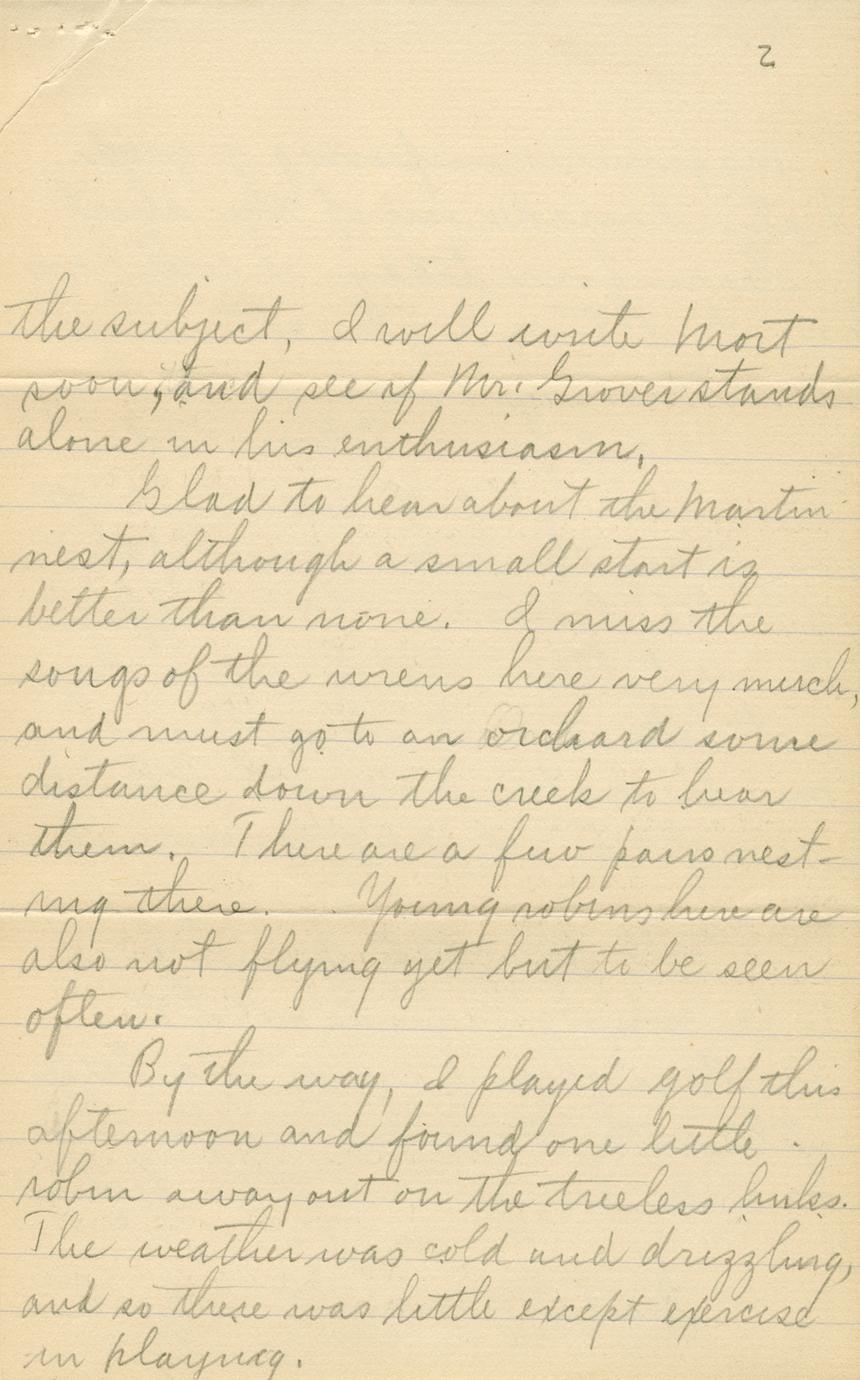 2
the subject, I will write Mort
soon, and see if Mr. Grover stands
alone in his enthusiasm.
Glad to hear about the Martin
nest, although a small start is
better than none. I miss the
songs of the wrens here very much,
and must go to an orchard some
distance down the creek to hear
them. There are a few pairs nest-
ing there. Young robins here are
also not flying yet but to be seen
often.
By the way, I played golf this
afternoon and found one little
robin away out on the treeless links.
The weather was cold and drizzling,
and so there was little except exercise
in playing.